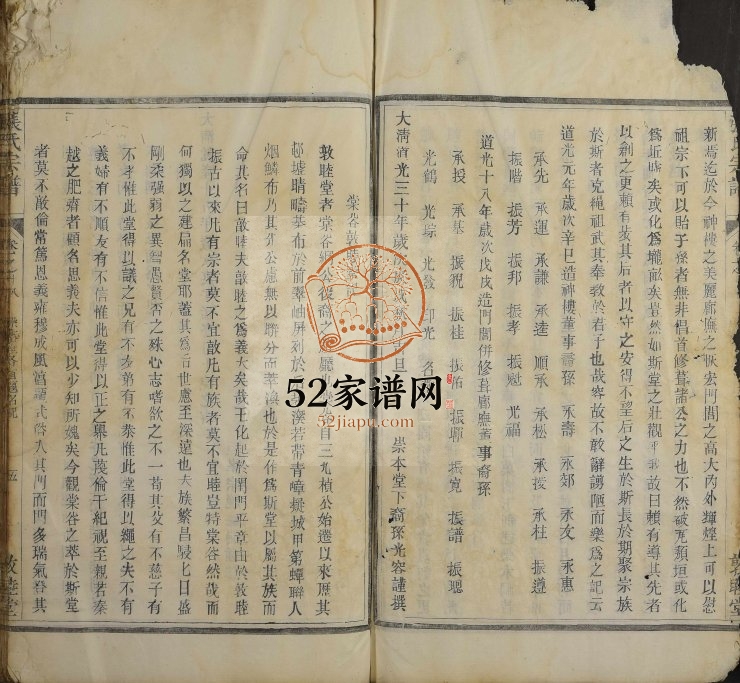 新焉迄於今神樓之美麗廊廡之恢宏門閭之高大內外輝煌上可以慰
祖宗下可以貽子孫者無非倡首修葺諸公之力也不然破瓦頹垣或化
爲坵墟矣或化爲
矣豈然如斯堂之壯觀乎哉故曰賴有導其先者
以創之更賴有
其后者以守之安得不望后之生於斯長於斯聚宗族
於斯者克繩祖武其奉教於君子也哉容故不敢辭謭陋而樂爲之記云
道光元年歲次辛巳造神樓董事裔孫
承壽 承郊 承文 承惠
承先 承運 承謙 承逵 順承 承松 承授 承杜
振階 振芳 振邦 振孝 振魁 光福 振遵
道光十八年歲次戊戌造門閭併修葺廊廡董事裔孫
承授 承基 振祝 振桂 振
振寬 振譜 振聰
光鶴 光
光發 印光
大清道光三十年歲
旦 崇本堂下裔孫光容謹撰
棠谷敦
敦睦堂者棠谷
公
裔之
廳
自三九楨公始遷以來歷其
邨墟晴疇棊布於前翠岫屏列於
溪若帶青嶂
城甲第蟬聯人
烟鱗布乃其先公慮無以聯分而萃渙也於是作爲斯堂以屬其族而
命其名曰敦睦夫敦睦之爲義大矣哉王化起於閨門平章由於敦睦
振古以來凡有宗者莫不宜敦凡有族者莫不宜睦豈特棠谷然哉而
何獨以之建扁名堂耶蓋其爲
世慮至深遠也夫族繁昌
七日盛
剛柔强弱之異
愚賢否之殊心志嗜欲之不一苟其父有不慈子有
不孝惟此堂得以議之兄有不友弟有不恭惟此堂得以繩之夫不有
義婦有不順友有不信惟此堂得以正之
凡蔑倫干紀視至親若秦
越之肥瘠者顧名思義夫亦可以少知所媿矣今觀棠谷之萃於斯堂
者莫不敵倫常篤恩義雍穆成風
人其門而門多瑞氣登其
張氏宗譜
敦睦堂
52家谱网
52jiapu.com